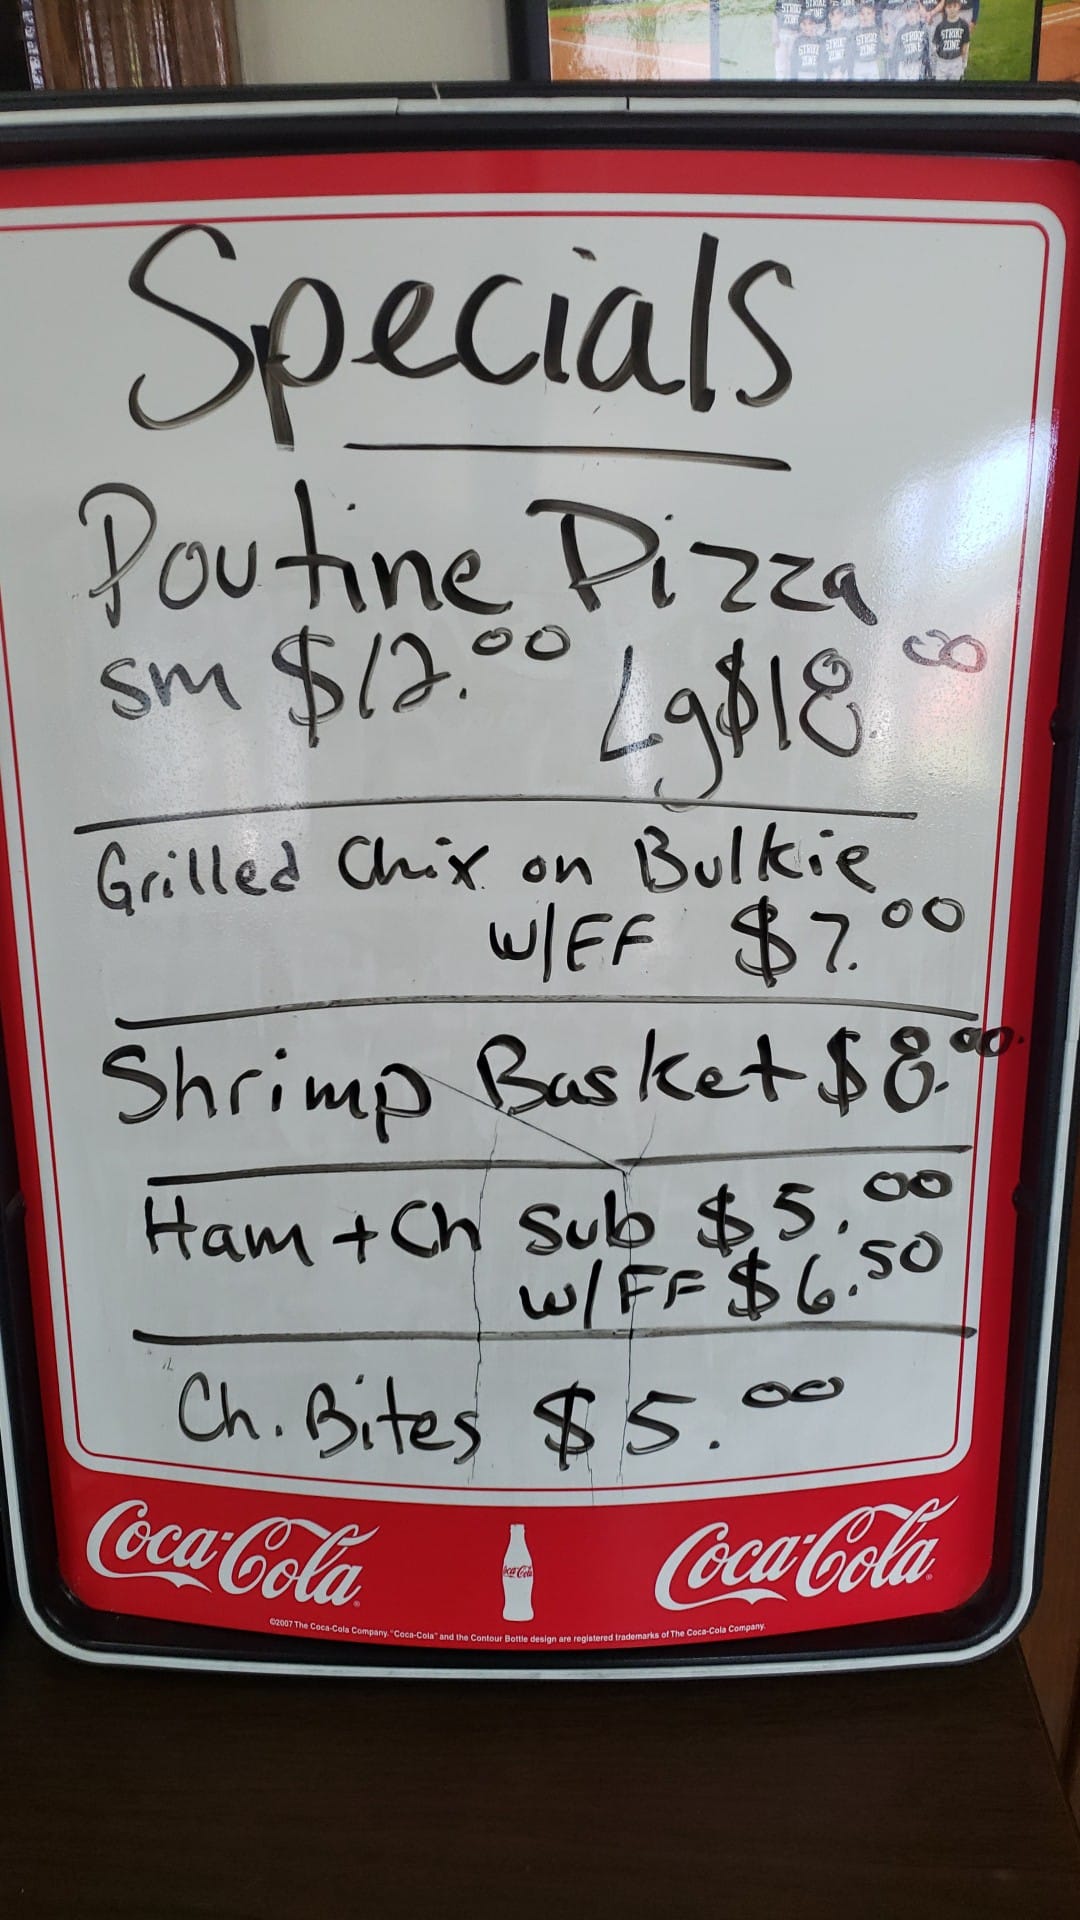 STRIKE ZONE
STRIKE ZONE
STRIKE ZONE
STRIKE ZONE
Specials
Poutine Pizza
sm $12.00 Lg $18.00
Grilled Chix on Bulkie
w/FF $7.00
Shrimp Basket $8.00
Ham + Ch Sub $5.00
w/FF $6.50
Ch. Bites $5.00
Coca-Cola Coca-Cola Coca-Cola
©2007 The Coca-Cola Company. "Coca-Cola" and the Contour Bottle design are registered trademarks of The Coca-Cola Company.